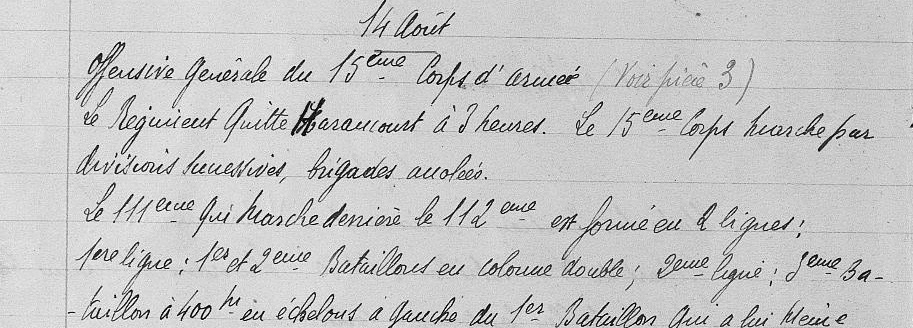 14 Août
Offensive Générale du 15eme Corps d'armée (Voir pièce 3)
Le Régiment Quitte Haraucourt à 3 heures. Le 15eme Corps marche par
divisions successives, brigades accolées.
Le 111eme qui marche derrière le 112eme est formé en 2 lignes;
1ere ligne: 1er et 2eme Bataillons en colonne double; 2eme ligne: 3eme Ba-
-taillon à 400m en échelons à gauche du 1er Bataillon qui a lui Même